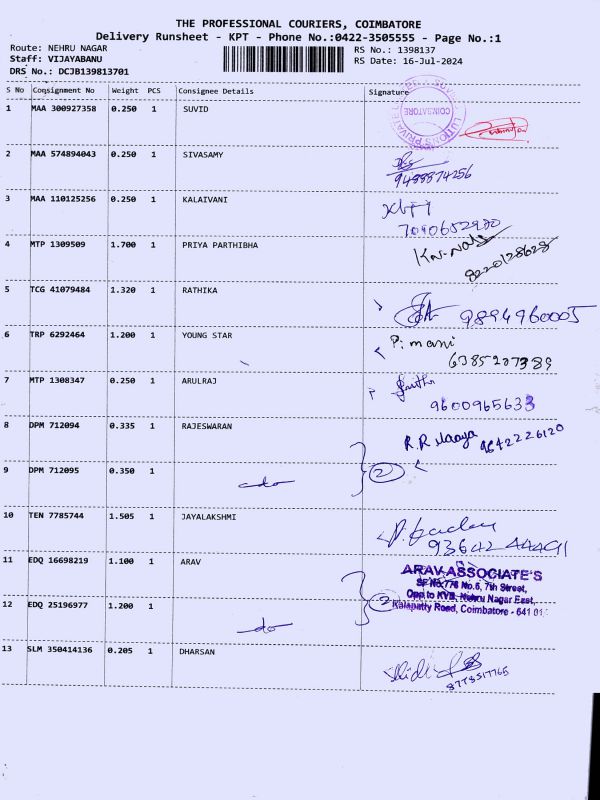 THE PROFESSIONAL COURIERS, COIMBATORE
Delivery Runsheet - KPT - Phone No.:0422-3505555 - Page No.:1
Route: NEHRU NAGAR RS No.: 1398137
Staff: VIJAYABANU RS Date: 16-Jul-2024
DRS No.: DCJB139813701
S No Consignment No Weight PCS Consignee Details Signature
1 MAA 300927358 0.250 1 SUVID
COIMBATORE
2 MAA 574894043 0.250 1 SIVASAMY
9488874256
3 MAA 110125256 0.250 1 KALAIVANI
7090652980
4 MTP 1309509 1.700 1 PRIYA PARTHIBHA
8220128628
5 TCG 41079484 1.320 1 RATHIKA
9894960005
6 TRP 6292464 1.200 1 YOUNG STAR P. mani
6385207389
7 MTP 1308347 0.250 1 ARULRAJ
9600965633
8 DPM 712094 0.335 1 RAJESWARAN
R.R 9642226120
9 DPM 712095 0.350 1 2
do
10 TEN 7785744 1.505 1 JAYALAKSHMI
9364244491
11 EDQ 16698219 1.100 1 ARAV
ARAV ASSOCIATE'S
SF No.776 No.6, 7th Street,
Opp.to KVB, Nehru Nagar East,
12 EDQ 25196977 1.200 1 2 Kalapatty Road, Coimbatore - 641 01
do
13 SLM 350414136 0.205 1 DHARSAN
8778517765